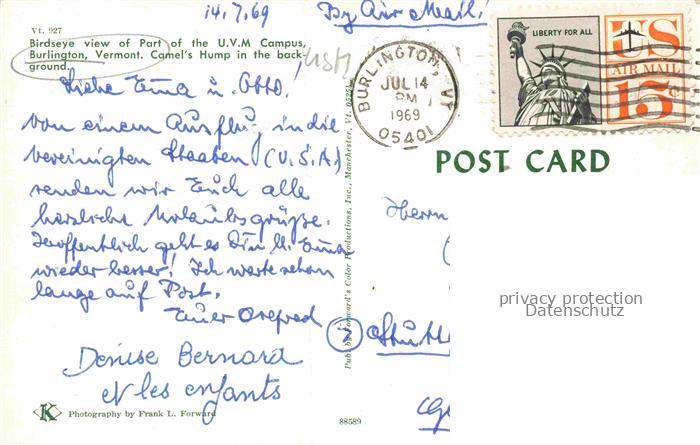 14.7.69 By Air Mail!
Vt. 927
Birdseye view of Part of the U.V.M Campus,
Burlington, Vermont. Camel's Hump in the back-
ground.
USA
Liebe Erna u. Otto!
Von einem Ausflug in die
vereinigten Staaten (U.S.A)
senden wir Euch alle
herzliche Urlaubsgrüße.
Hoffentlich geht es Dir u. Erna
wieder besser! Ich warte schon
lange auf Post.
Euer
Denise Bernard
et les enfants
K Photography by Frank L. Forward
88589
Pub. by Forward's Color Productions, Inc., Manchester, Vt. 05255
BURLINGTON, VT
JUL 14
PM
1969
05401
LIBERTY FOR ALL
US
AIR MAIL
15c
POST CARD
Herrn
7
privacy protection
Datenschutz